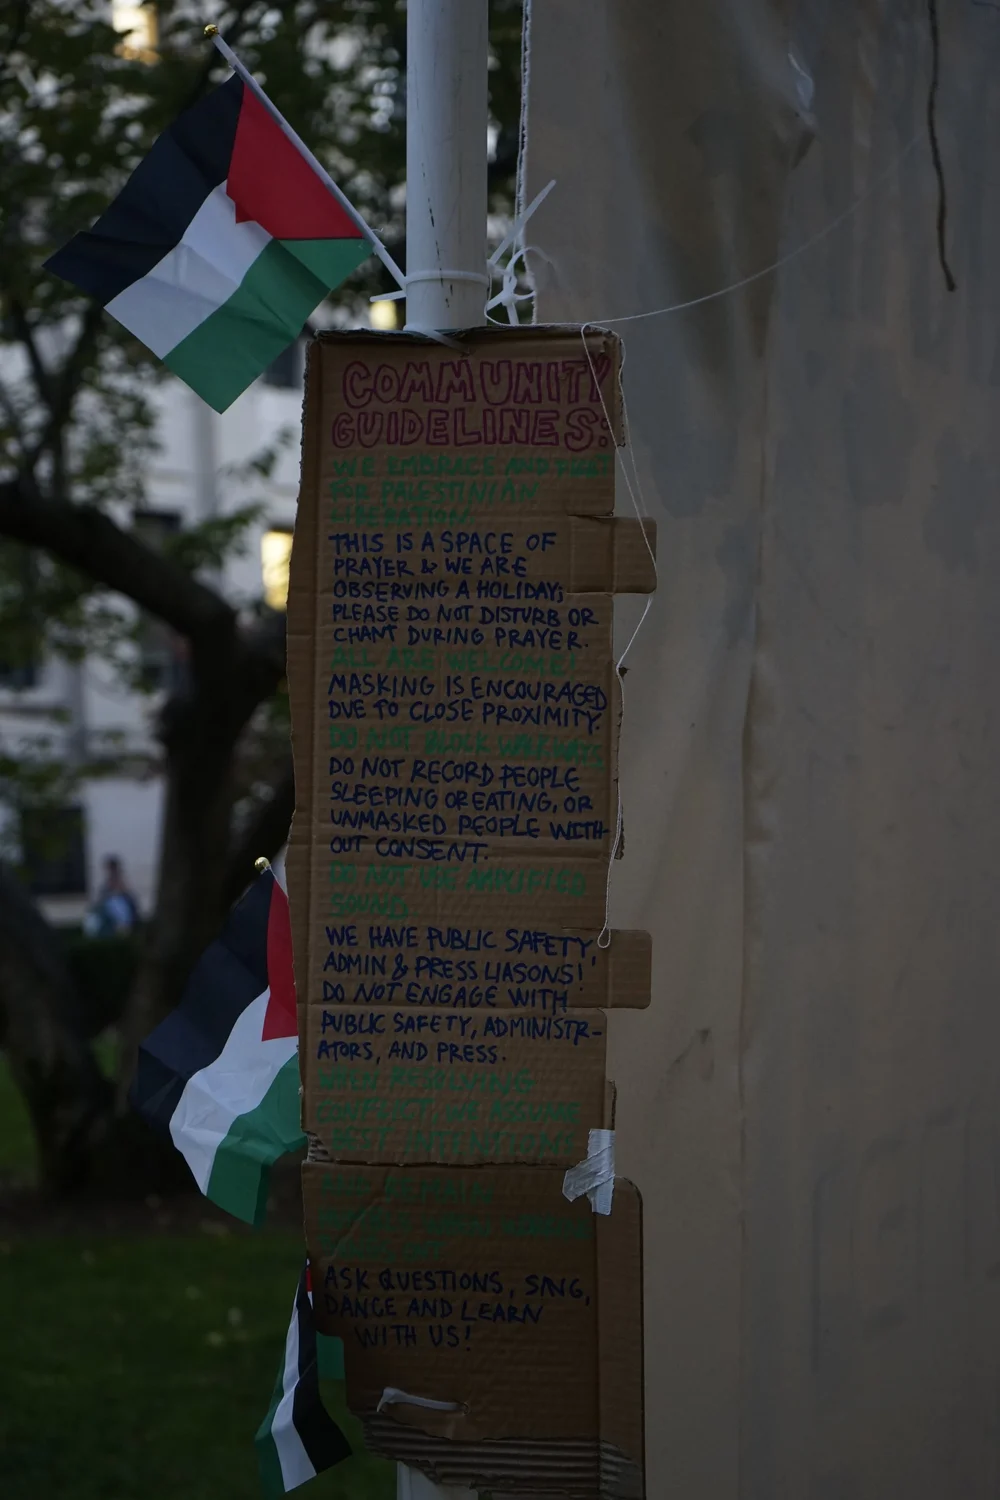 COMMUNITY
GUIDELINES:
WE EMBRACE AND FIGHT
FOR PALESTINIAN
LIBERATION.
THIS IS A SPACE OF
PRAYER & WE ARE
OBSERVING A HOLIDAY;
PLEASE DO NOT DISTURB OR
CHANT DURING PRAYER.
ALL ARE WELCOME!
MASKING IS ENCOURAGED
DUE TO CLOSE PROXIMITY.
DO NOT BLOCK WALKWAYS
DO NOT RECORD PEOPLE
SLEEPING OR EATING, OR
UNMASKED PEOPLE WITH-
OUT CONSENT.
DO NOT USE AMPLIFIED
SOUND.
WE HAVE PUBLIC SAFETY,
ADMIN & PRESS LIASONS!
DO NOT ENGAGE WITH
PUBLIC SAFETY, ADMINISTR-
ATORS, AND PRESS.
WHEN RESOLVING
CONFLICT, WE ASSUME
BEST INTENTIONS
AND REMAIN
WHEN
ASK QUESTIONS, SING,
DANCE AND LEARN
WITH US!